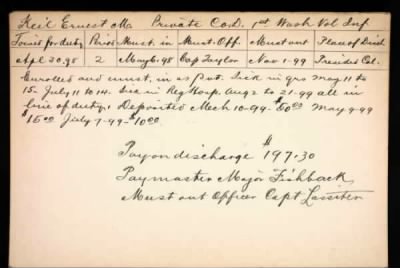 Keil Ernest M. Private Co D. 1st Wash Vol Inf
Joined for duty Period Must. in Must. Off. Must out Place of Disch
Apl 30-98 2 May 6-98 Cap Taylor Nov 1-99 Presidio Cal.
Enrolled and must. in as Pvt. Sick in qrs May 11 to
15- July 11 to 14. Sick in Reg Hosp. Aug 2 to 21-99 all in
line of duty. Deposited Mech 10-99- $50.00 May 9-99
$15.00 July 7-99- $10.00
Pay on discharge $197.30
Paymaster Major Fishback
Must out Officer Capt Lassiter